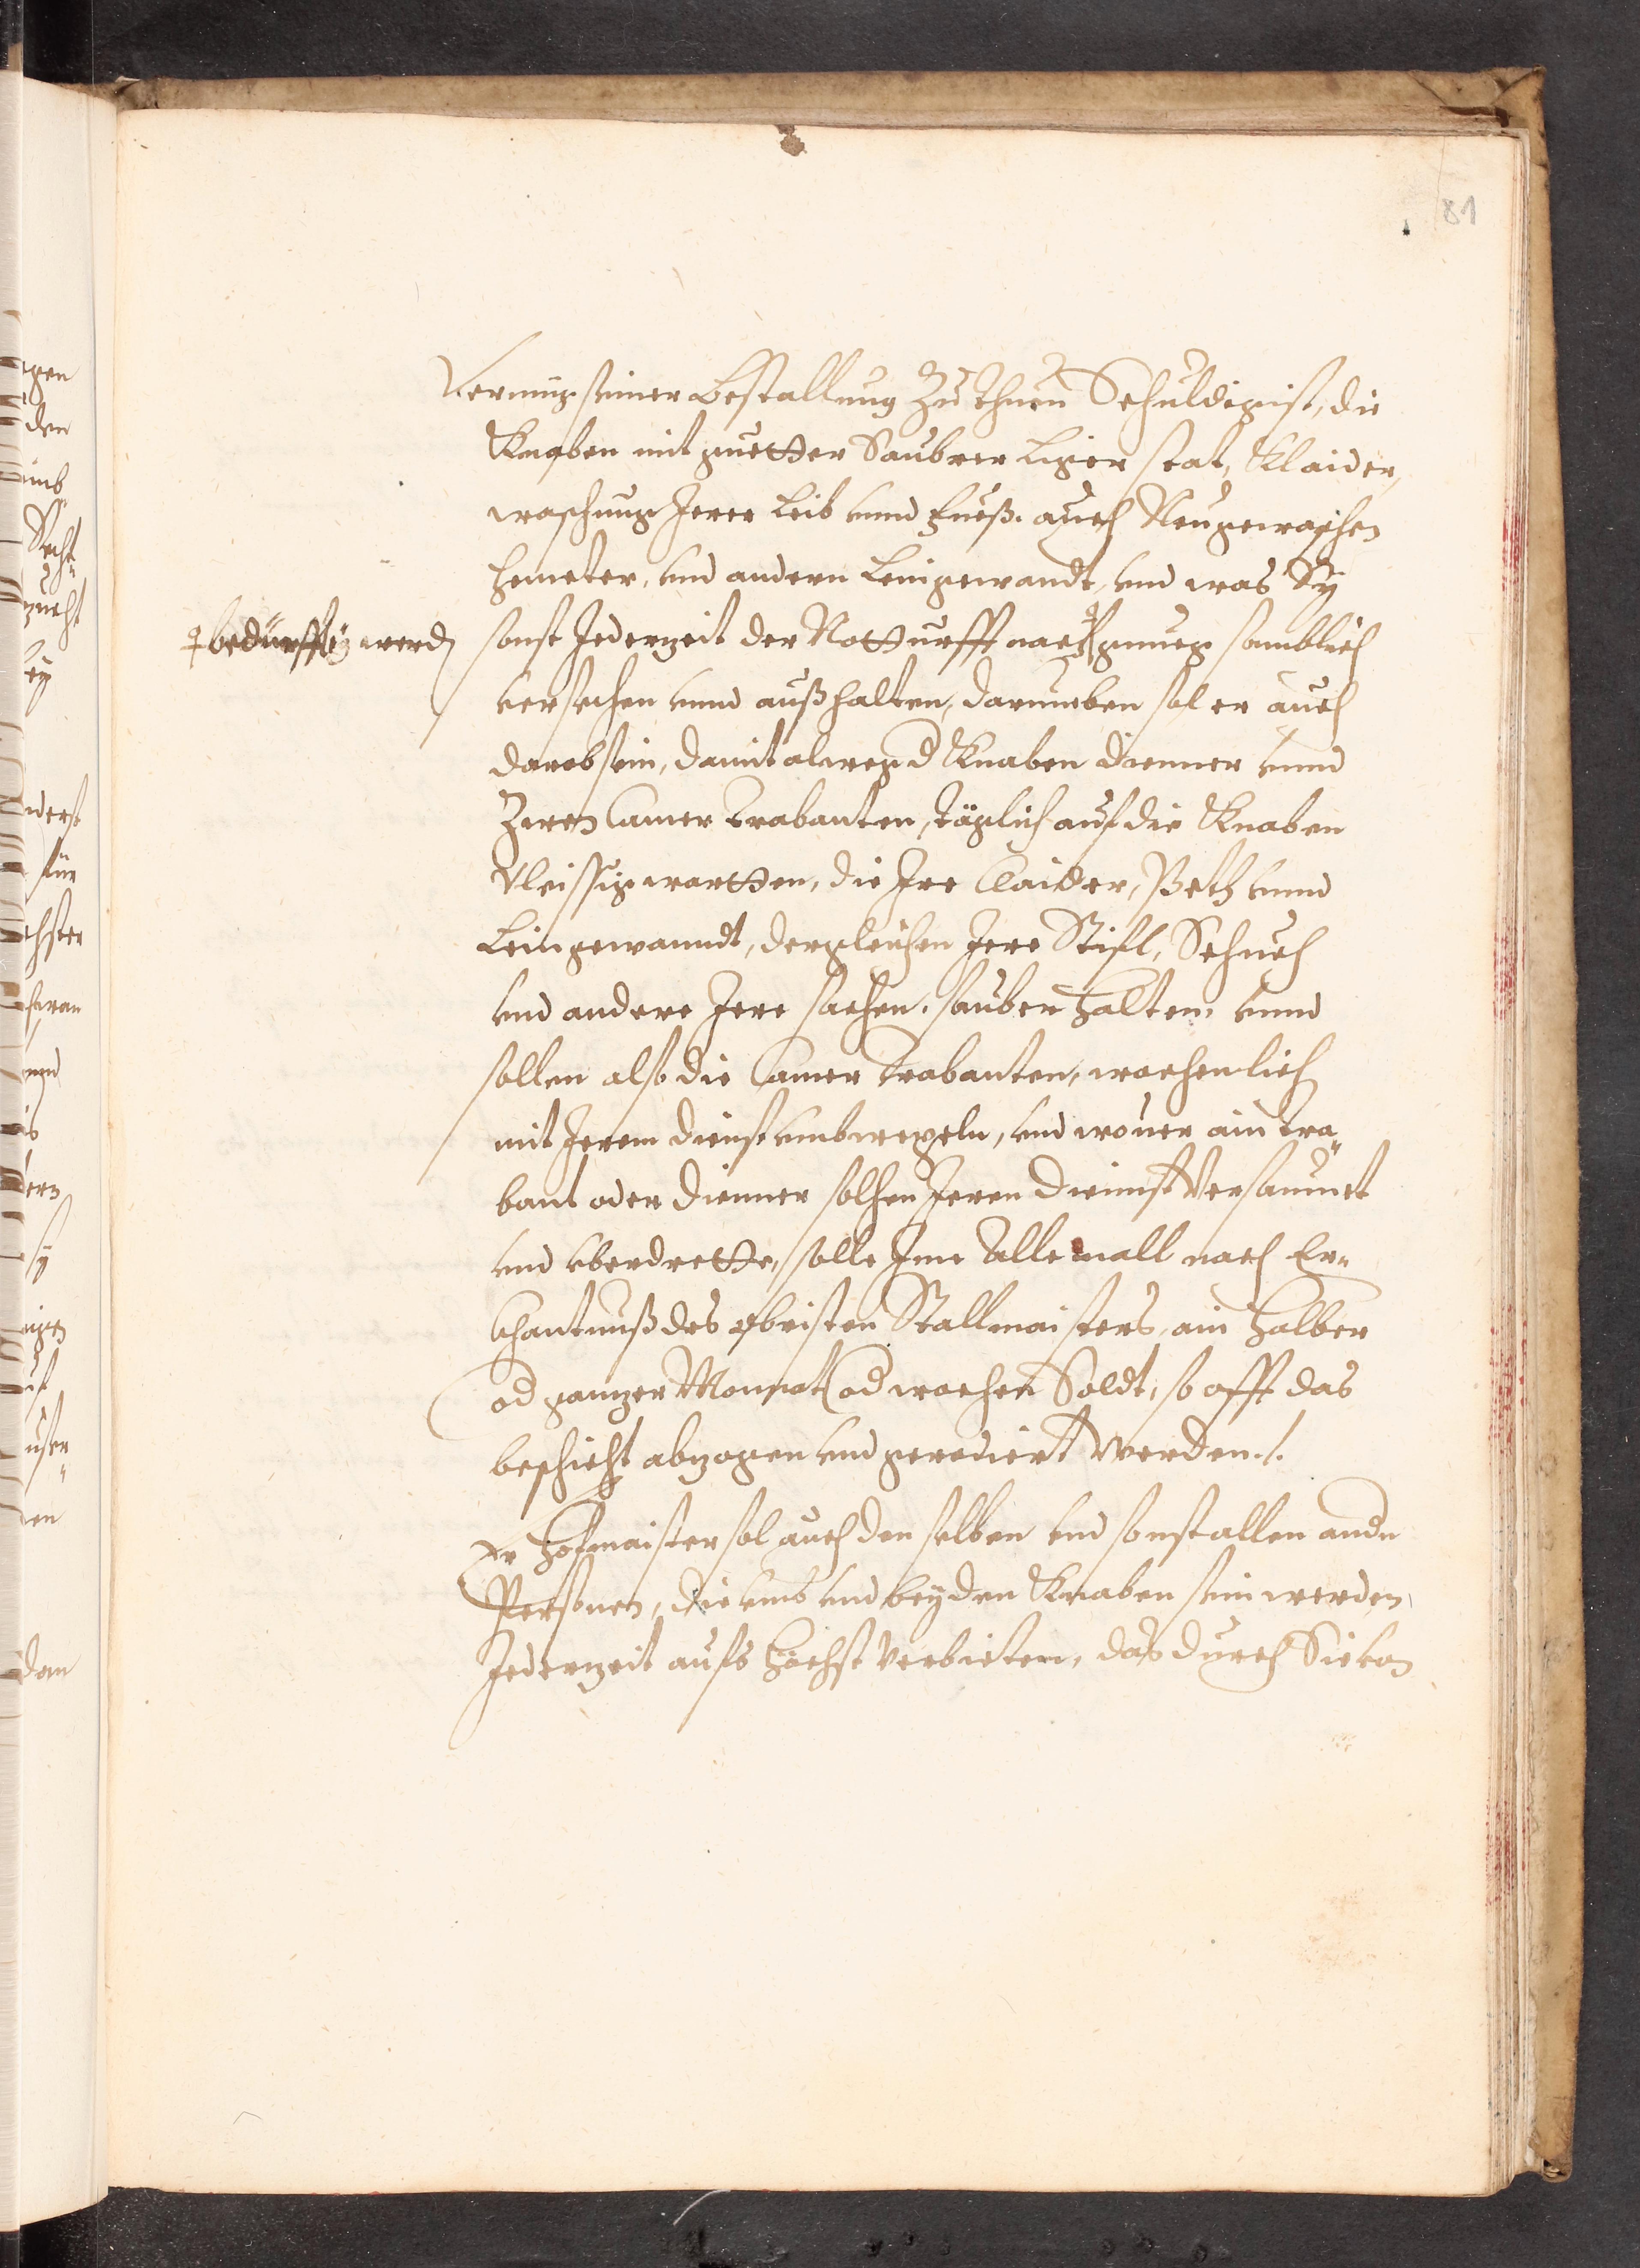 81
Vermüg seiner Bestallung Zu thuen Schuldig ist, die
Knaben mit guetter Saubrer Liger stat, Klaider,
waschung Jerer Leib vnnd Fueß. auch Neugewaschen
hemeter, vnd andern Leingewandt, vnd was Sy
bedurfftig werden
sonst Jederzeit der Notturfft nach gnueg saubrlich
versehen vnnd außhalten, darneben sol er auch
darob sein, damit alweg d Knaben dienner vnnd
Zwen Camer Trabanten, täglich auf die Knaben
Vleissig wartten, die Jre Claider, Peth vnnd
Leingewanndt, dergleichen Jere Stifl, Schuech
vnd andere Jere sachen. sauber halten. vnnd
sollen also die Camer Trabanten, wochenlich
mit Jerem dienst vmbwexeln, vnd wouer ain Tra¬
bant oder dienner solhen Jeren Diennst Versaumet
vnd vberdrette, solle Jme Allemall nach Er¬
Khantnuß des Obristen Stallmaisters, ain halber
od ganzer Monnat od wochen Soldt, so offt das
beschieht abzogen vnd geradiert werden./.
Er Hofmaister sol auch den selben vnd sonst allen andn
Personen, die vmb vnd bey den Knaben sein werden,
Jederzeit aufs höchst Verbieten, das durch Sie kan